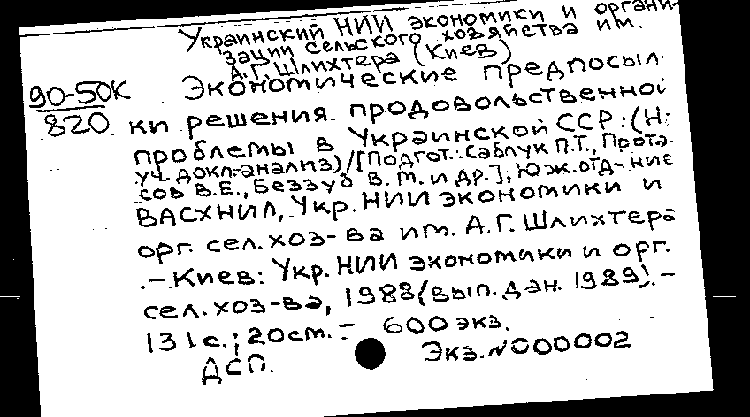 Украинский НИИ экономики и органи-
зации сельского хозяйства им.
А.Г. Шлихтера (Киев)
90-50К
820
Экономические предпосыл
ки решения продовольственной
проблемы в Украинской ССР: (Н:
уч. докл.-анализ) / [Подгот.: Саблук П.Т., Прота
сов В.Е., Беззуб В.М. и др.], Юж. отд-ние
ВАСХНИЛ, Укр. НИИ экономики и
орг. сел. хоз-ва им. А.Г. Шлихтера
.- Киев: Укр. НИИ экономики и орг.
сел. хоз-ва, 1988 (вып. дан. 1989). -
131с.; 20см. - 600 экз.
ДСП. Экз. N000002